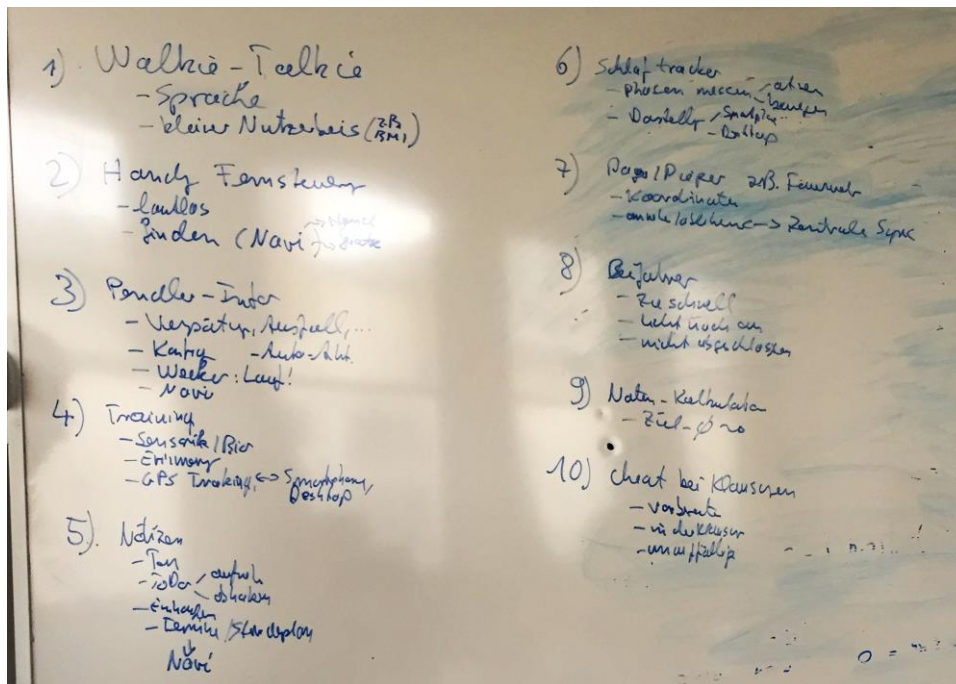 1) Walkie-Talkie
- Sprache
- kleiner Nutzerkreis (z.B. BMI)
2) Handy Fernsteuerg
- lautlos
- Finden (Navi)
3) Pendler-Info
- Verspätung, Ausfall, ...
- Karte - Auto-Akt.
- Wecker: Lauf!
- Navi
4) Training
- Sensorik/Bio
- Erinnerung
- GPS Tracking <-> Smartphone, Desktop
5) Notizen
- Ton
- ToDo
abhaken
- Einkaufen
- Termine/Stundenplan
↓
Navi
6) Schlaftracker
- Phasen messen - atmen
bewegen
- Darstellg - Smartph.
- Desktop
7) Pager/Pieper z.B. Feuerwehr
- Koordinaten
-> Zentrale Sync
8) Beifahrer
- zu schnell
- Licht noch an
- nicht abgeschlossen
9) Noten-Kalkulator
- Ziel-Ø
10) Cheat bei Klausuren
- vorbereiten
- in der Klausur
- unauffällig
0 =